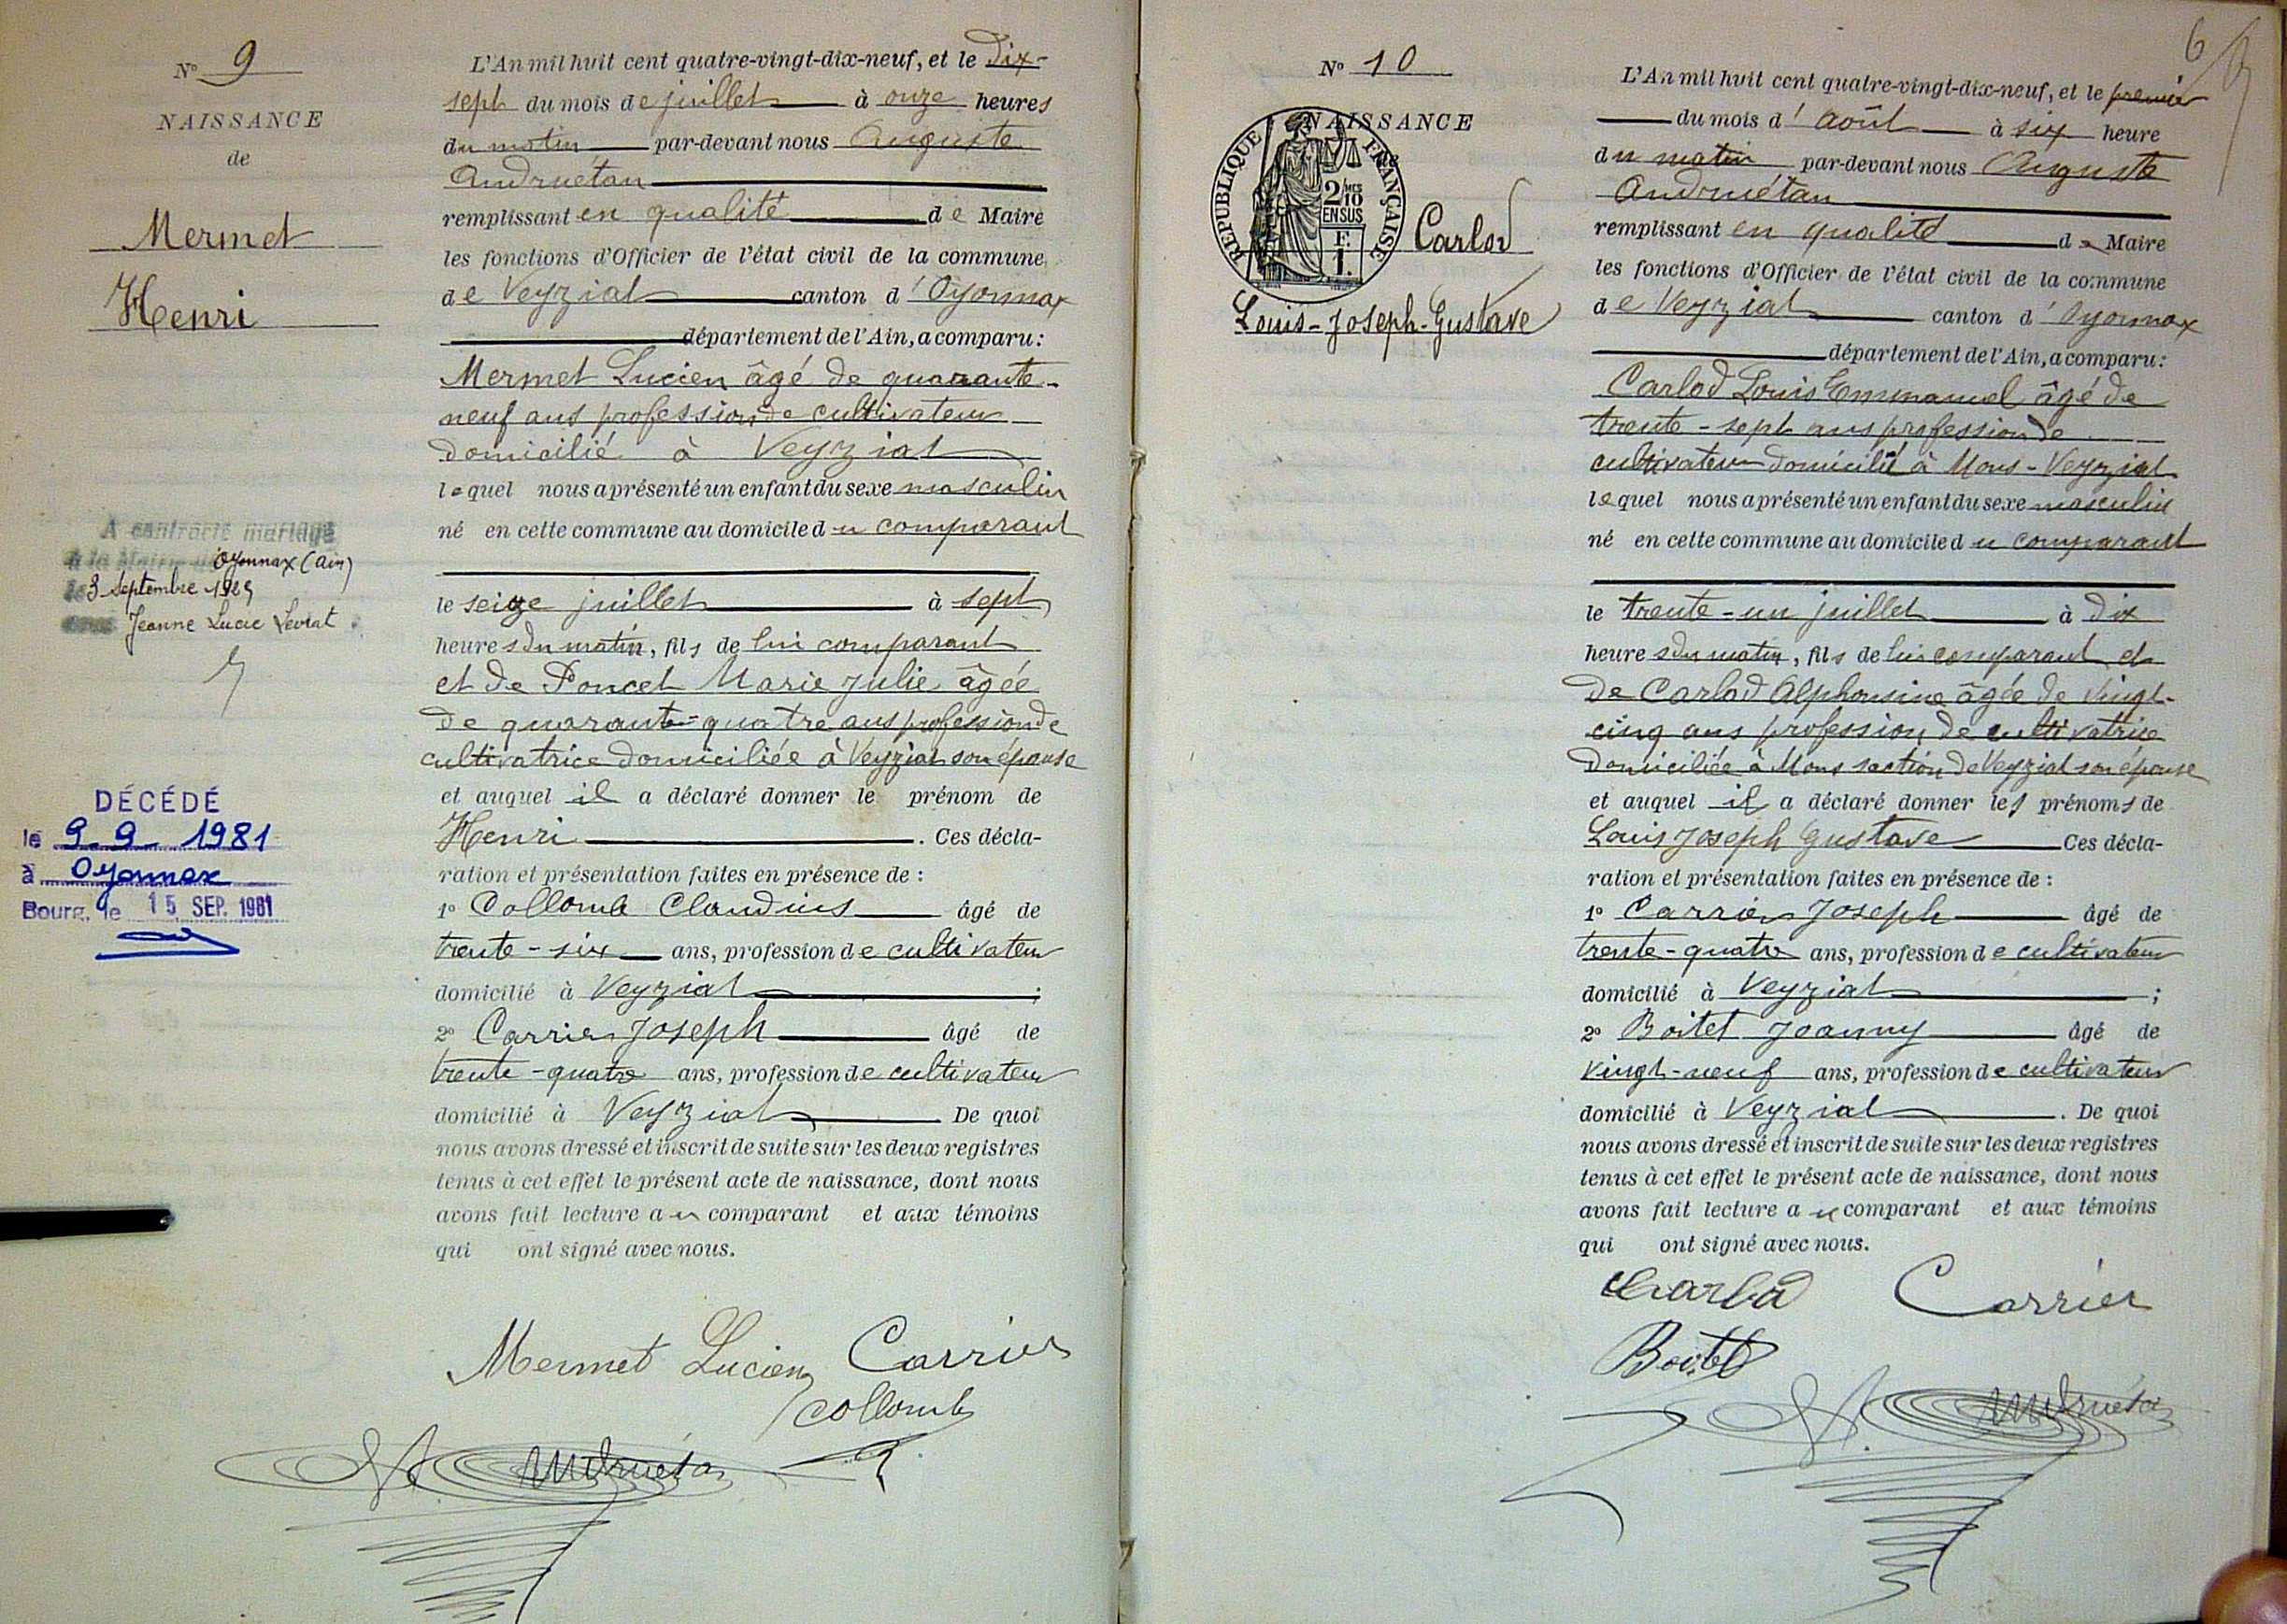 N° 9
NAISSANCE
de
Mermet
Henri
A contracté mariage
à la Mairie Oyonnax (Ain)
3 Septembre 1925
Jeanne Lucie Levrat
DÉCÉDÉ
le 9-9-1981
à Oyonnax
Bourg, le 15 SEP. 1981
L'An mil huit cent quatre-vingt-dix-neuf, et le dix-
sept du mois de juillet à onze heures
du matin par-devant nous Auguste
Andruétan
remplissant en qualité de Maire
les fonctions d'Officier de l'état civil de la commune
de Veyziat canton d'Oyonnax
département de l'Ain, a comparu :
Mermet Lucien âgé de quarante-
neuf ans profession de cultivateur
domicilié à Veyziat
lequel nous a présenté un enfant du sexe masculin
né en cette commune au domicile du comparant
le seize juillet à sept
heures du matin, fils de lui comparant
et de Poncet Marie Julie âgée
de quarante-quatre ans profession de
cultivatrice domiciliée à Veyziat son épouse
et auquel il a déclaré donner le prénom de
Henri . Ces décla-
ration et présentation faites en présence de :
1° Collomb Claudius âgé de
trente-six ans, profession de cultivateur
domicilié à Veyziat ;
2° Carrier Joseph âgé de
trente-quatre ans, profession de cultivateur
domicilié à Veyziat De quoi
nous avons dressé et inscrit de suite sur les deux registres
tenus à cet effet le présent acte de naissance, dont nous
avons fait lecture au comparant et aux témoins
qui ont signé avec nous.
Mermet Lucien Carrier
Collomb
A. Andruétan
6
N° 10
NAISSANCE
RÉPUBLIQUE FRANÇAISE
2/10 MES
EN SUS
F.
1.
Carlod
Louis-Joseph-Gustave
L'An mil huit cent quatre-vingt-dix-neuf, et le premier
du mois d'août à six heure
du matin par-devant nous Auguste
Andruétan
remplissant en qualité de Maire
les fonctions d'Officier de l'état civil de la commune
de Veyziat canton d'Oyonnax
département de l'Ain, a comparu :
Carlod Louis Emmanuel âgé de
trente-sept ans profession de
cultivateur domicilié à Mons-Veyziat
lequel nous a présenté un enfant du sexe masculin
né en cette commune au domicile du comparant
le trente-un juillet à dix
heures du matin, fils de lui comparant et
de Carlod Alphonsine âgée de vingt-
cinq ans profession de cultivatrice
domiciliée à Mons section de Veyziat son épouse
et auquel il a déclaré donner les prénoms de
Louis Joseph Gustave Ces décla-
ration et présentation faites en présence de :
1° Carrier Joseph âgé de
trente-quatre ans, profession de cultivateur
domicilié à Veyziat ;
2° Boitet Joanny âgé de
vingt-neuf ans, profession de cultivateur
domicilié à Veyziat . De quoi
nous avons dressé et inscrit de suite sur les deux registres
tenus à cet effet le présent acte de naissance, dont nous
avons fait lecture au comparant et aux témoins
qui ont signé avec nous.
Carlod Carrier
Boitet
A. Andruétan